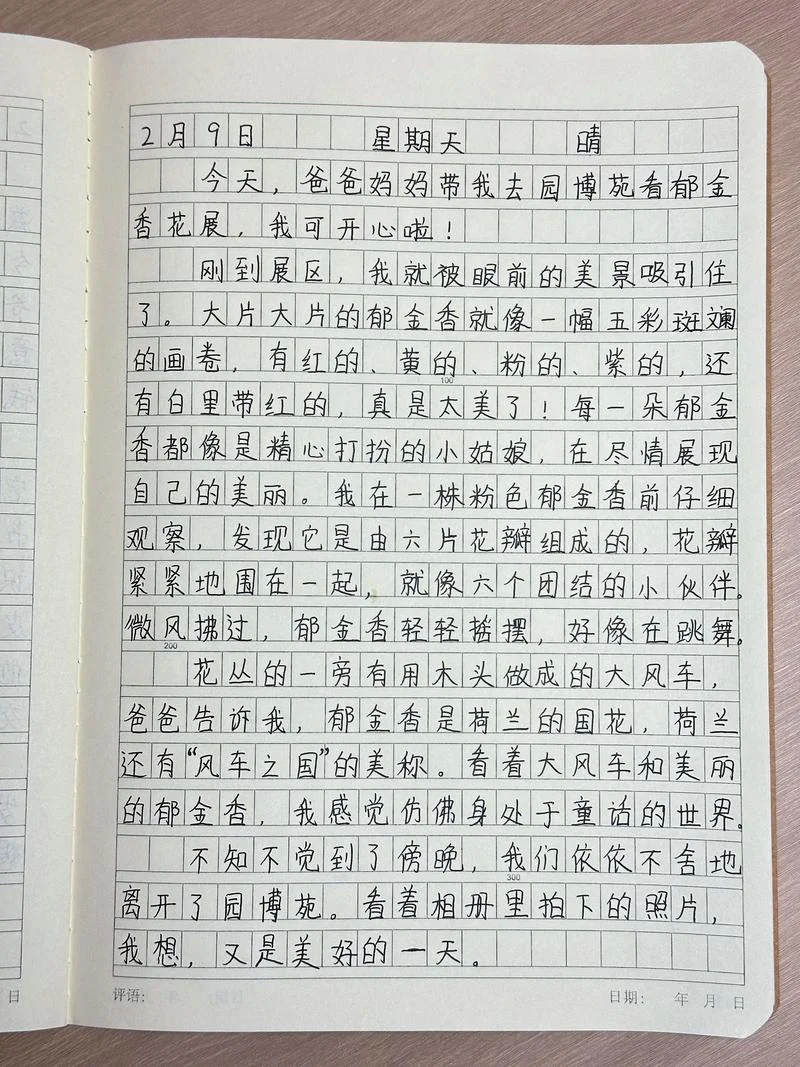 2月9日 星期天 晴
今天，爸爸妈妈带我去园博苑看郁金
香花展，我可开心啦！
刚到展区，我就被眼前的美景吸引住
了。大片大片的郁金香就像一幅五彩斑斓
的画卷，有红的、黄的、粉的、紫的，还
100
有白里带红的，真是太美了！每一朵郁金
香都像是精心打扮的小姑娘，在尽情展现
自己的美丽。我在一株粉色郁金香前仔细
观察，发现它是由六片花瓣组成的，花瓣
紧紧地围在一起，就像六个团结的小伙伴。
微风拂过，郁金香轻轻摇摆，好像在跳舞。
200
花丛的一旁有用木头做成的大风车，
爸爸告诉我，郁金香是荷兰的国花，荷兰
还有“风车之国”的美称。看着大风车和美丽
的郁金香，我感觉仿佛身处于童话的世界。
不知不觉到了傍晚，我们依依不舍地
300
离开了园博苑。看着相册里拍下的照片，
我想，又是美好的一天。
日 评语： 日期： 年 月 日